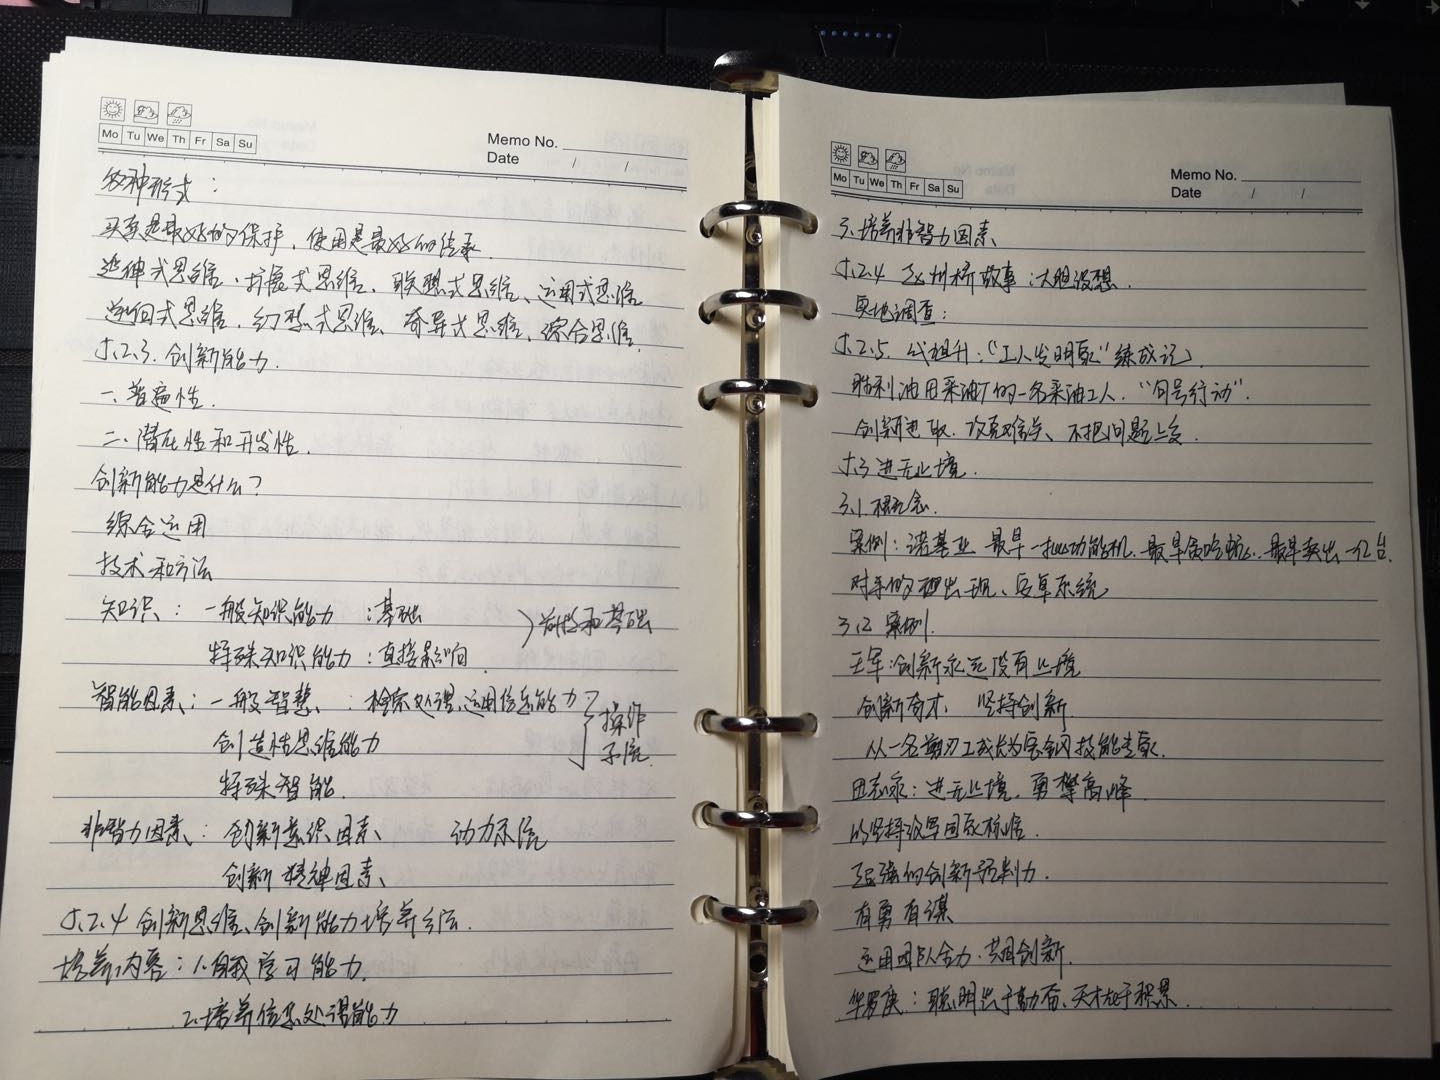 Mo Tu We Th Fr Sa Su
Memo No.
Date / /
各种形式：
买卖是最好的保护，使用是最好的传承
延伸式思维、扩展式思维、联想式思维、运用式思维
逆向式思维、幻想式思维、奇异式思维、综合思维
5.2.3. 创新能力.
一、普遍性.
二、潜在性和开发性.
创新能力是什么？
综合运用
技术和方法
知识：一般知识能力：基础
特殊知识能力：直接影响
前提和基础
智能因素：一般智慧：检索处理、运用信息能力
创造性思维能力
特殊智能.
操作
系统.
非智力因素：创新意识因素 动力系统
创新精神因素
5.2.4 创新思维、创新能力培养方法.
培养内容：1.自我学习能力.
2.培养信息处理能力
Mo Tu We Th Fr Sa Su
Memo No.
Date / /
3.培养非智力因素
5.2.4 赵州桥故事：大胆设想.
实地调查：
5.2.5. 代旭升：“工人发明家”练成记
胜利油田采油厂的一名采油工人. “问号行动”.
创新进取、攻克难关、不把问题上交.
5.3 进无止境.
3.1.概念.
案例：诺基亚 最早一批功能机. 最早 最早卖出一亿台.
对手的 出现、安卓系统
3.2 案例.
王军：创新永远没有止境
创新奇才 坚持创新
从一名剪刃工成长为宝钢技能专家.
田志永：进无止境. 勇攀高峰
以坚持改写国家标准.
超强的创新预判力.
有勇有谋
运用团队合力. 共同创新.
华罗庚：聪明出于勤奋，天才在于积累.